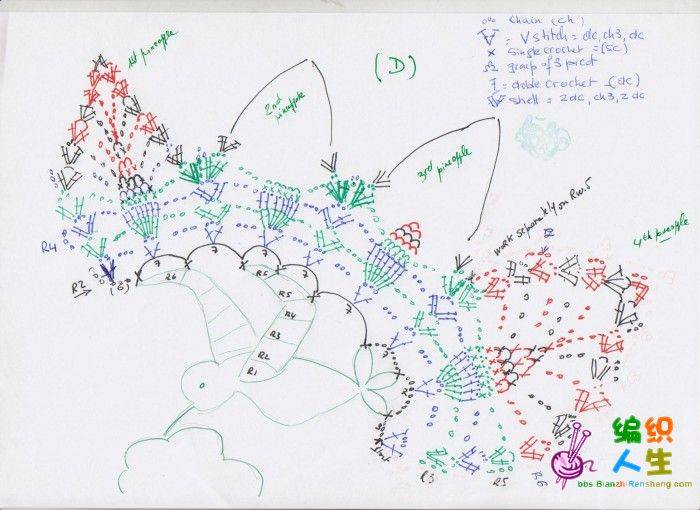 ooo chain (ch)
= V stitch = dc, ch3, dc
x single crochet = (sc)
group of 3 picot
= double crochet - (dc)
shell = 2dc, ch3, 2dc
(D)
1st pineapple
2nd
3rd pineapple
work separately on Rw.5
4th pineapple
R4
R2
7
7
7
7
7
R6
R5
R5
R4
R3
R2
R1
R3
R5
R6
编织
人生
bbs.BianzhiRensheng.com